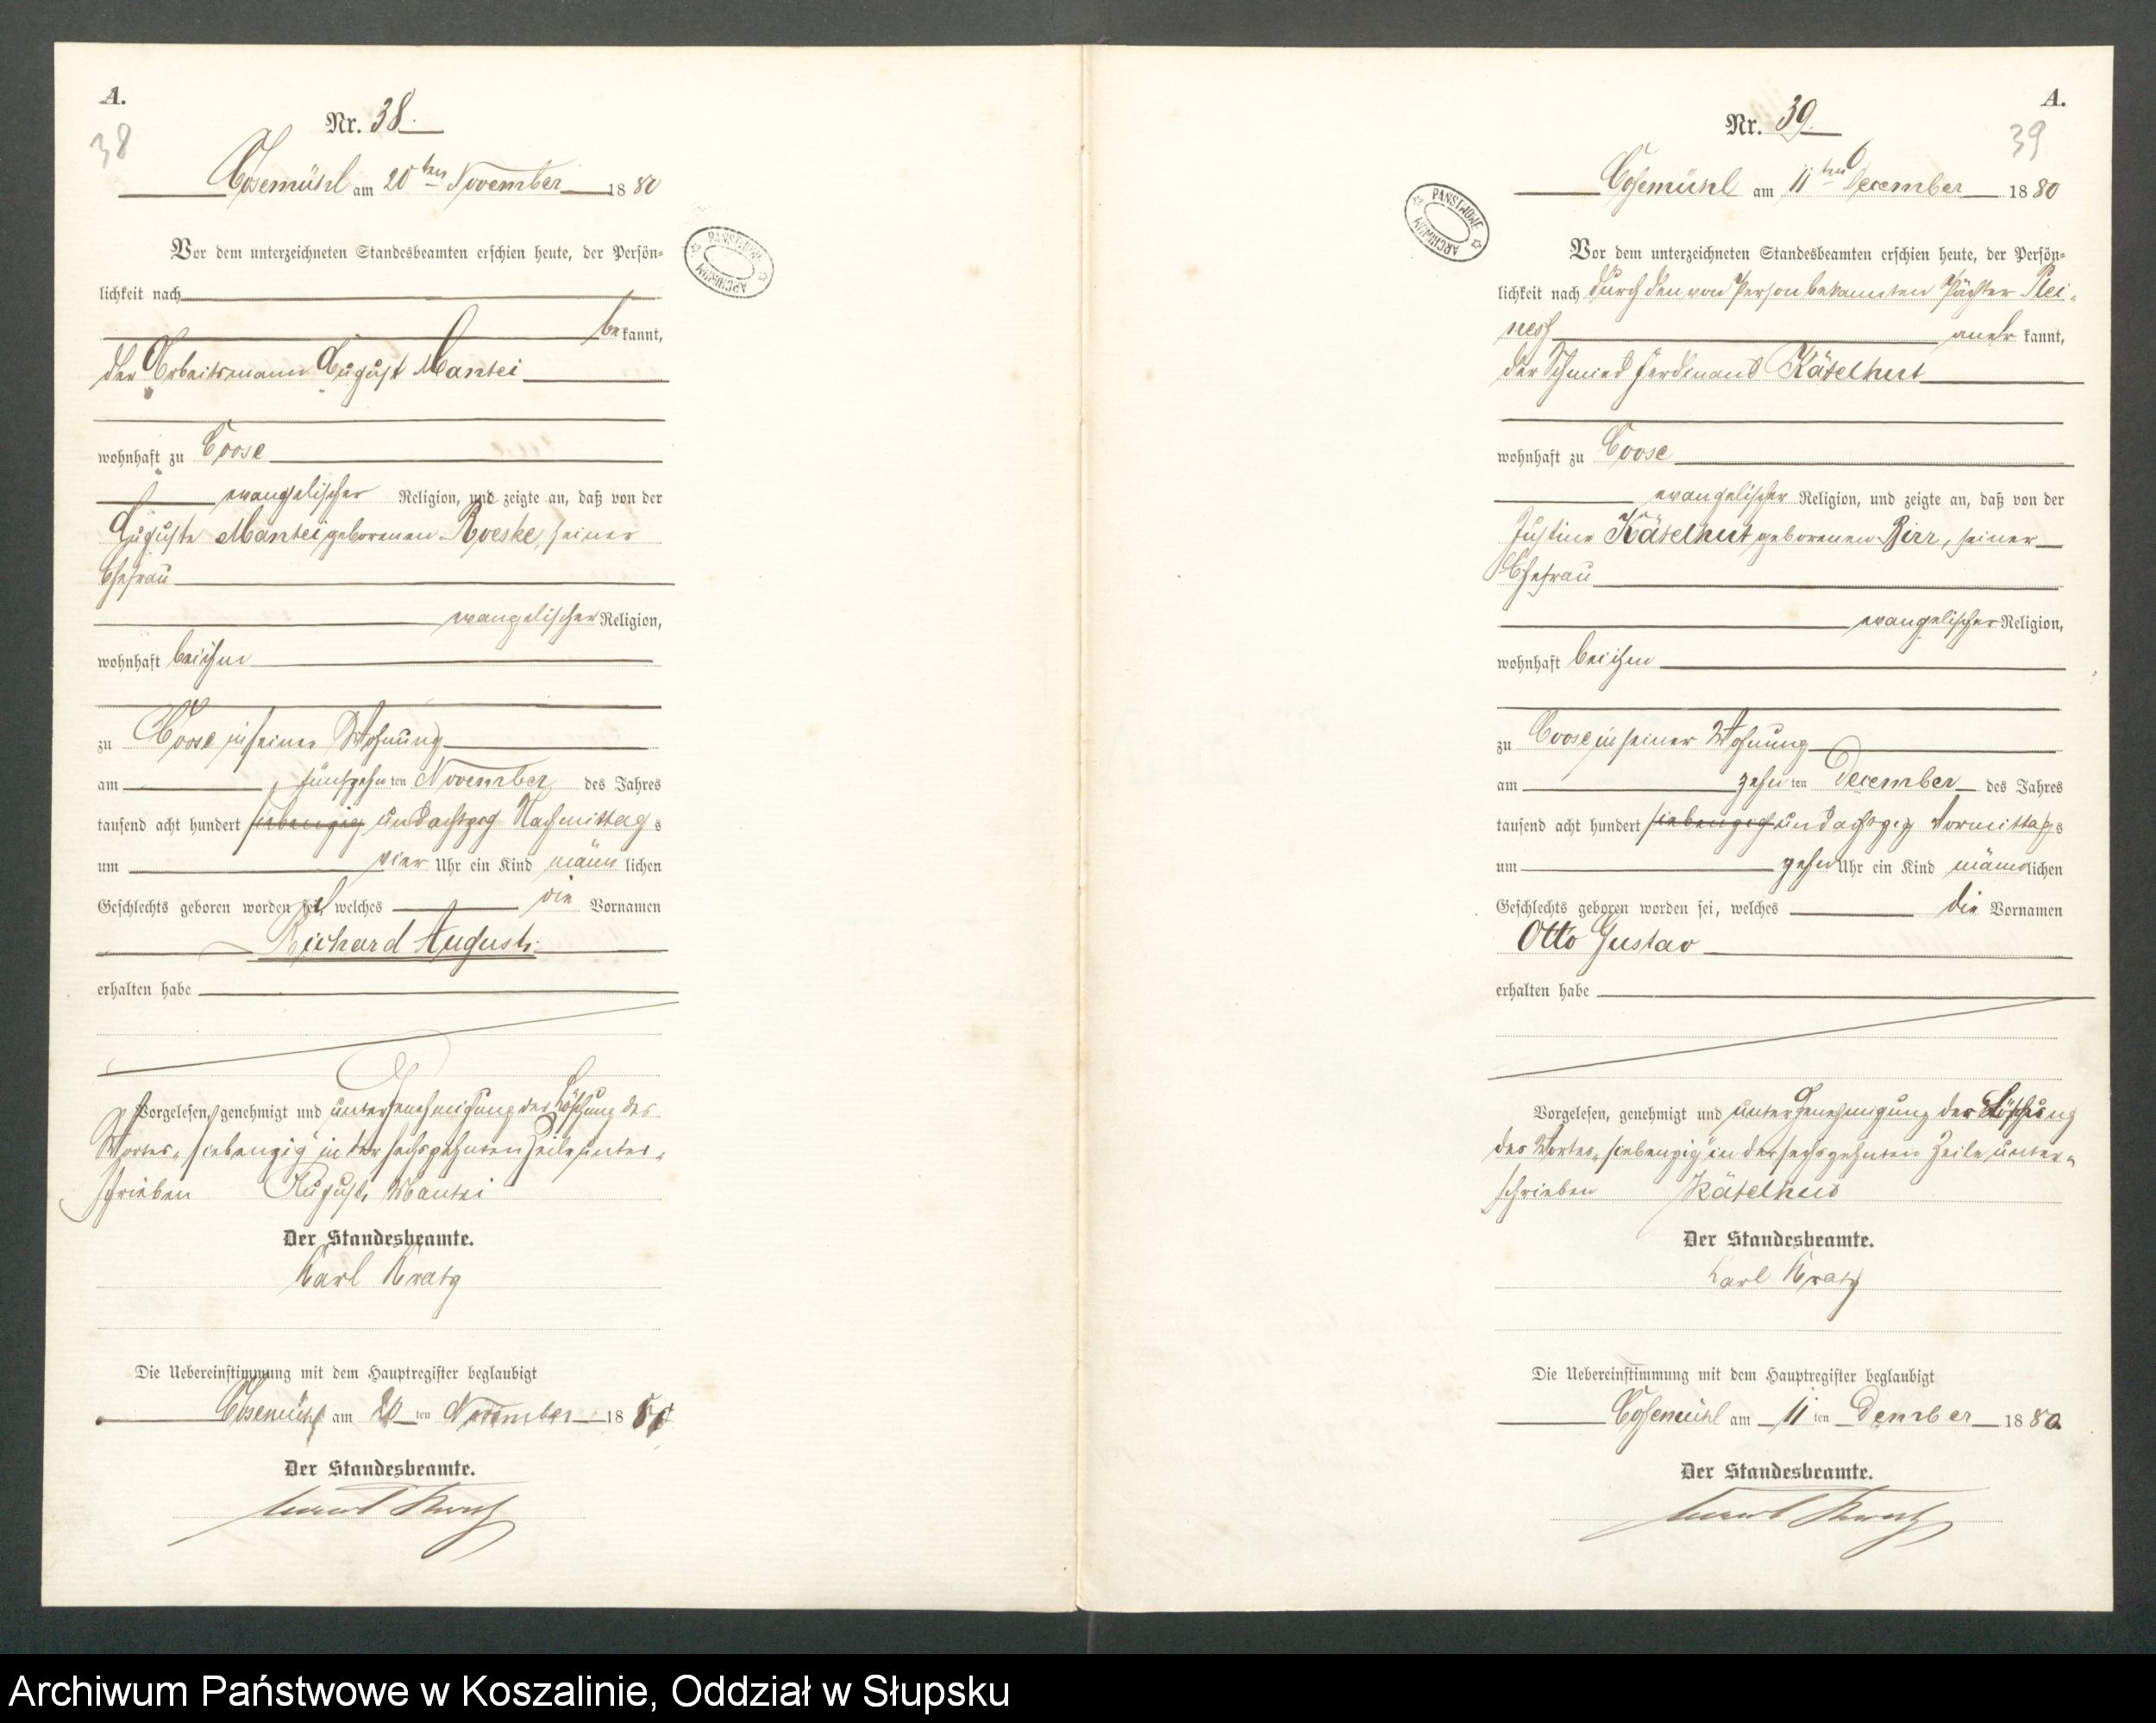 A.
38
Nr. 38.
Cosemühl am 20ten November 1880
Vor dem unterzeichneten Standesbeamten erschien heute, der Persön-
lichkeit nach
bekannt,
der Arbeitsmann August Mantei
wohnhaft zu Coose
evangelischer Religion, und zeigte an, daß von der
Auguste Mantei geborenen Roeske, seiner
Ehefrau
evangelischer Religion,
wohnhaft bei ihm
zu Coose in seiner Wohnung
am fünfzehnten November des Jahres
tausend acht hundert siebenzig und achtzig Nachmittags
um vier Uhr ein Kind männlichen
Geschlechts geboren worden sei, welches die Vornamen
Richard August
erhalten habe
Vorgelesen, genehmigt und unter Genehmigung der Löschung des
Wortes „siebenzig" in der sechszehnten Zeile unter-
schrieben August Mantei
Der Standesbeamte.
Karl Kratz
Die Uebereinstimmung mit dem Hauptregister beglaubigt
Cosemühl am 20ten November 1880
Der Standesbeamte.
Kratz
PAŃSTWOWE ARCHIWUM
A.
39
Nr. 39.
Cosemühl am 11ten December 1880
Vor dem unterzeichneten Standesbeamten erschien heute, der Persön-
lichkeit nach durch den von Person bekannten Pächter Plei-
nesz anerkannt,
der Schmied Ferdinand Kätelhut
wohnhaft zu Coose
evangelischer Religion, und zeigte an, daß von der
Justine Kätelhut geborenen Birr, seiner
Ehefrau
evangelischer Religion,
wohnhaft bei ihm
zu Coose in seiner Wohnung
am zehnten December des Jahres
tausend acht hundert siebenzig und achtzig Vormittags
um zehn Uhr ein Kind männlichen
Geschlechts geboren worden sei, welches die Vornamen
Otto Gustav
erhalten habe
Vorgelesen, genehmigt und unter Genehmigung der Löschung
des Wortes „siebenzig" in der sechszehnten Zeile unter-
schrieben Kätelhut
Der Standesbeamte.
Karl Kratz
Die Uebereinstimmung mit dem Hauptregister beglaubigt
Cosemühl am 11ten Dember 1880
Der Standesbeamte.
Kratz
PAŃSTWOWE ARCHIWUM
Archiwum Państwowe w Koszalinie, Oddział w Słupsku